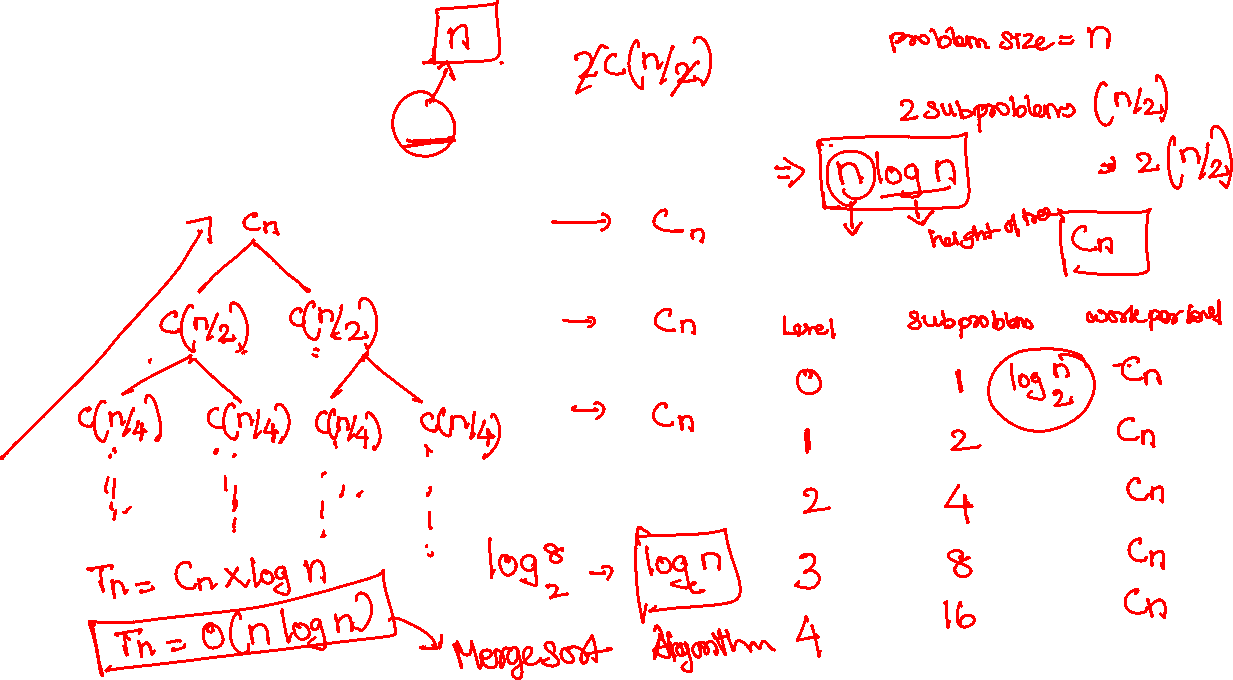 n
2C(n/2)
problem size = n
2 subproblems (n/2)
⇒ n log n
2(n/2)
height of tree
Cn
Cn → Cn
C(n/2) C(n/2) → Cn
C(n/4) C(n/4) C(n/4) C(n/4) → Cn
Level subproblems work per level
0 1 log n 2 Cn
1 2 Cn
2 4 Cn
3 8 Cn
4 16 Cn
Tn = Cn x log n
log 8 2 → log n
Tn = O(n log n)
Merge sort Algorithm